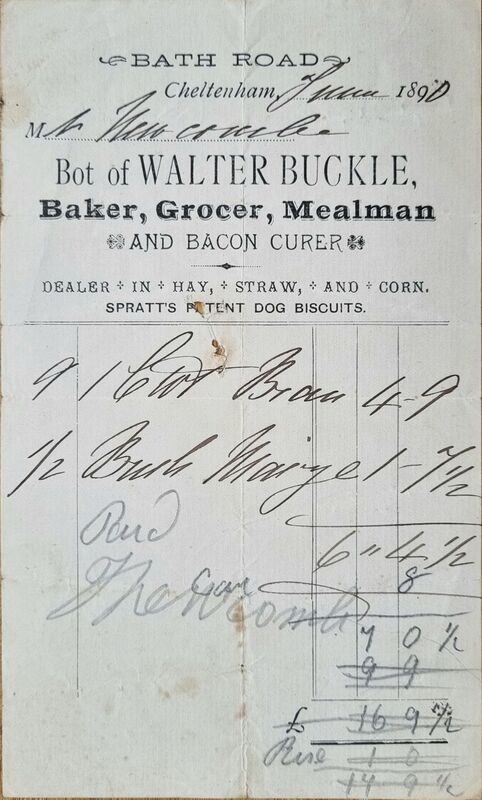 BATH ROAD
Cheltenham, June 1890
Mr Newcombe
Bot of WALTER BUCKLE,
Baker, Grocer, Mealman
AND BACON CURER
DEALER IN HAY, STRAW, AND CORN.
SPRATT'S PATENT DOG BISCUITS.
9 1 Cwt Bran 4-9
1/2 Bush Maize 1-7 1/2
6" 4 1/2
8
7 0 1/2
9 9
£ 16 9 1/2
1 0
17 9 1/2